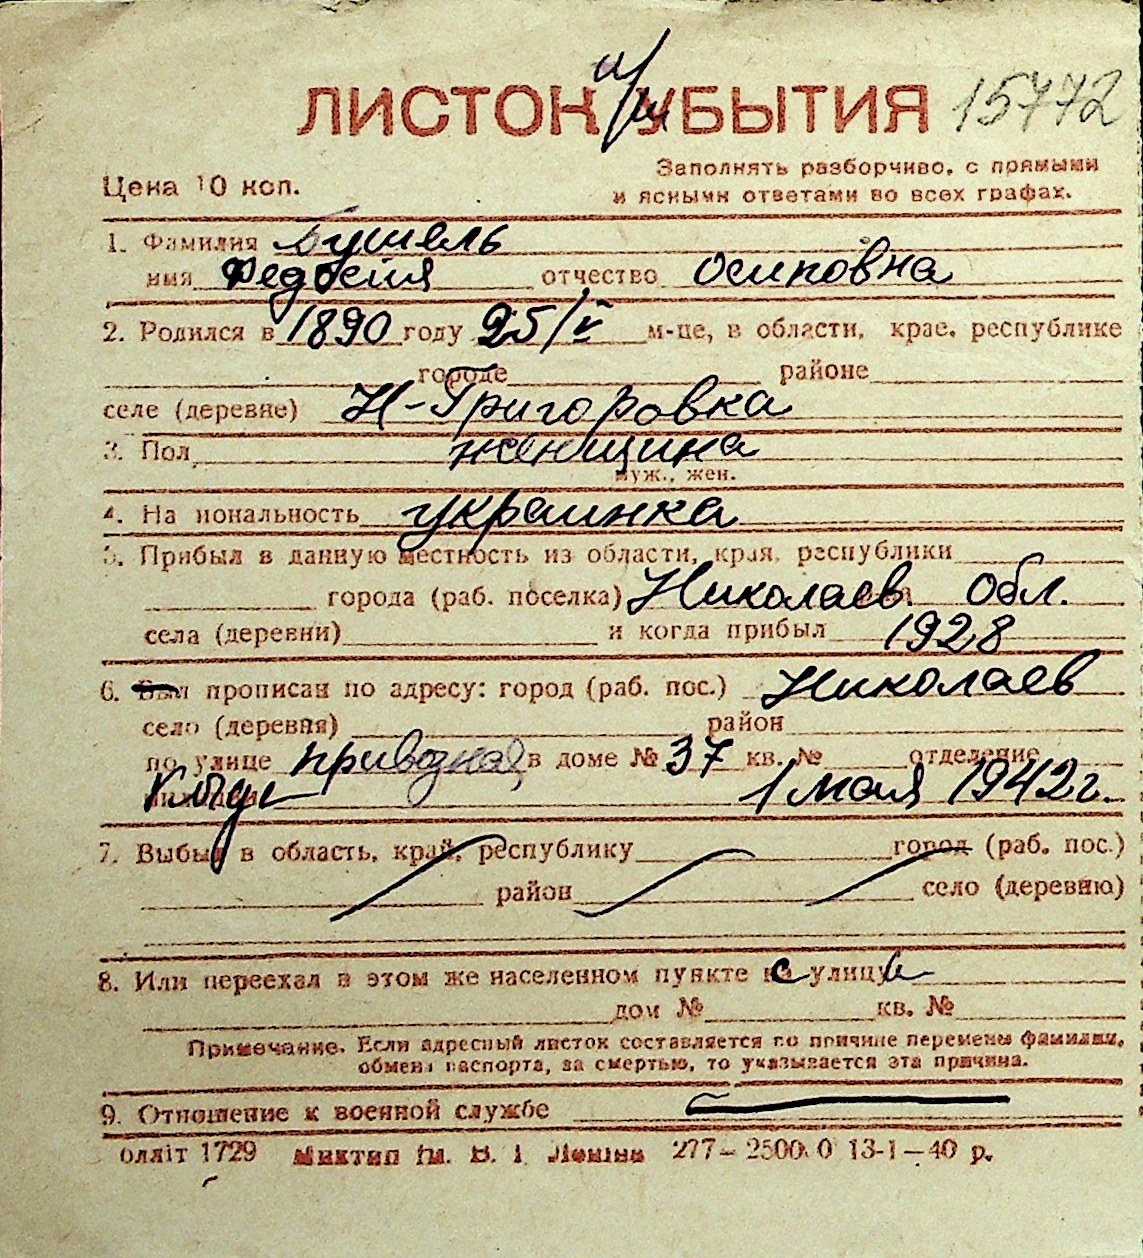 ЛИСТОК УБЫТИЯ 15772
Цена 10 коп.
Заполнять разборчиво, с прямыми
и ясными ответами во всех графах.
1. Фамилия Бушель
имя отчество Осиповна
2. Родился в 1890 году 25/V м-це, в области, крае, республике
городе районе
селе (деревне) Н-Григоровка
3. Пол женщина
муж., жен.
4. На иональность украинка
5. Прибыл в данную местность из области, края, республики
города (раб. поселка) Николаев. обл.
села (деревни) и когда прибыл 1928
6. Был прописан по адресу: город (раб. пос.) Николаев
село (деревня) район
по улице приводная в доме № 37 кв. № отделение
1 мая 1942 г.
7. Выбыл в область, край, республику город (раб. пос.)
район село (деревню)
8. Или переехал в этом же населенном пункте с улицы
дом № кв. №
Примечание. Если адресный листок составляется по причине перемены фамилии,
обмена паспорта, за смертью, то указывается эта причина.
9. Отношение к военной службе
олліт 1729 Миктип Ім. В. І Леніна 277–2500 0 13-1–40 р.